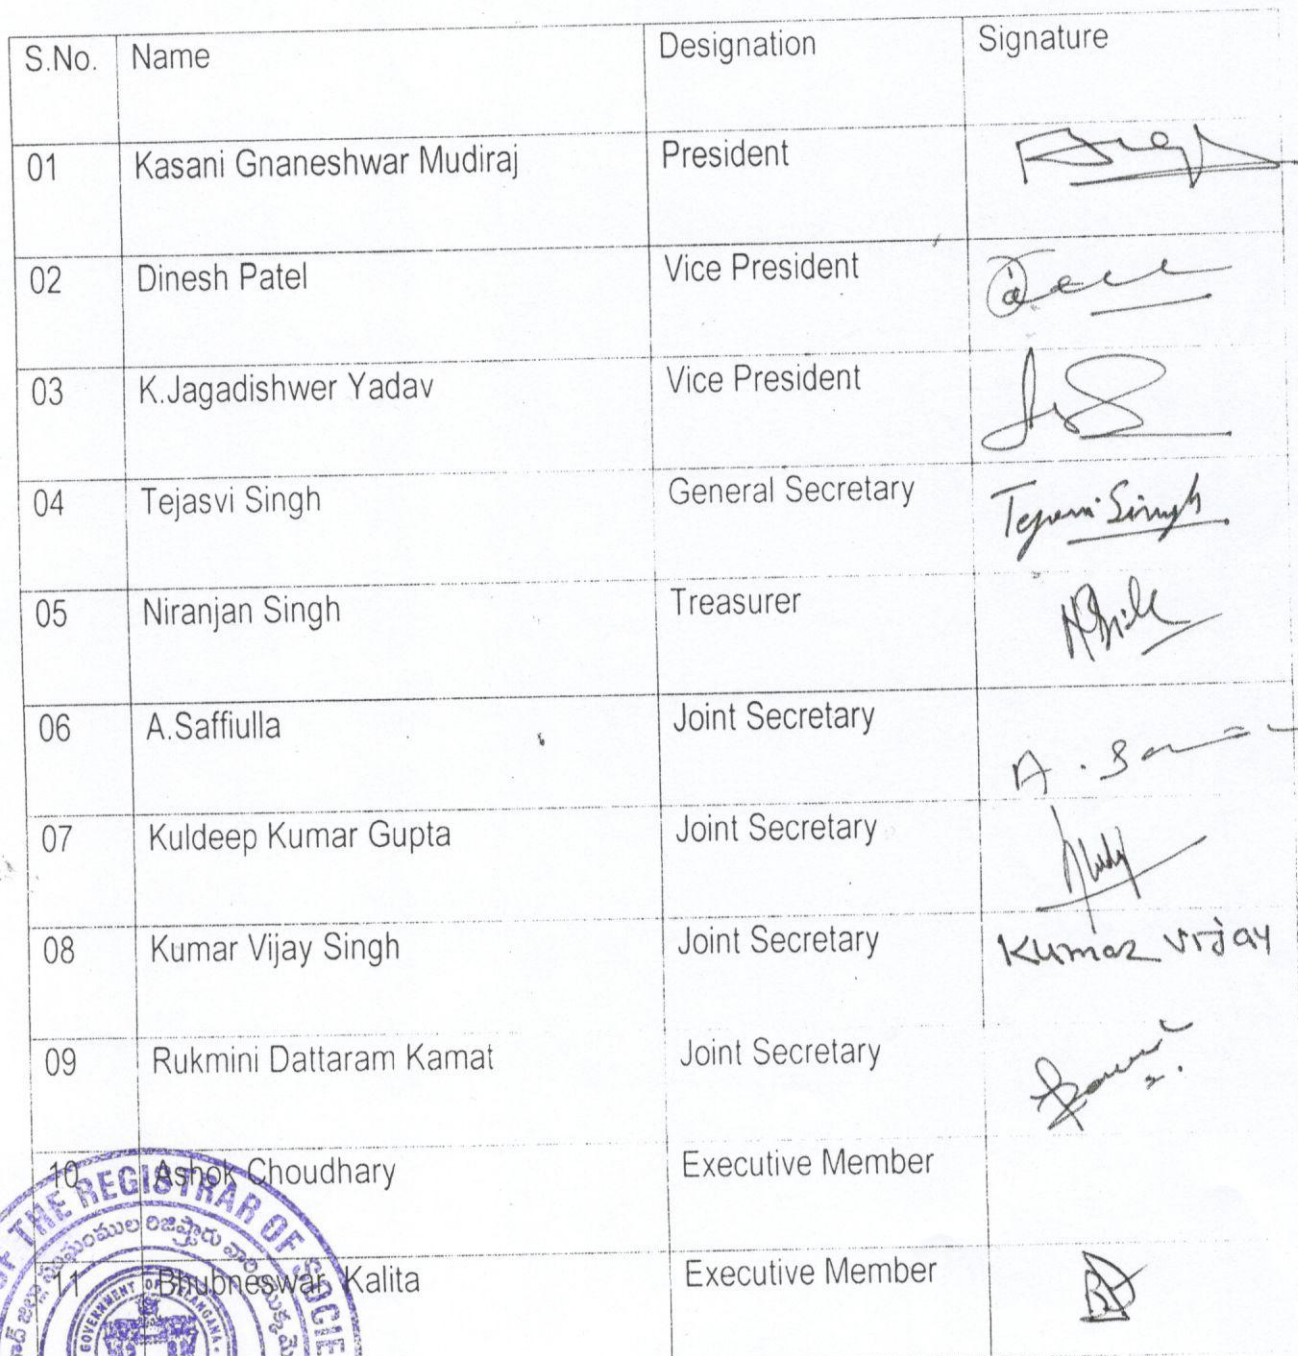 S.No. Name Designation Signature
01 Kasani Gnaneshwar Mudiraj President
02 Dinesh Patel Vice President
03 K.Jagadishwer Yadav Vice President
04 Tejasvi Singh General Secretary Tejasvi Singh
05 Niranjan Singh Treasurer
06 A.Saffiulla Joint Secretary
07 Kuldeep Kumar Gupta Joint Secretary
08 Kumar Vijay Singh Joint Secretary Kumar Vijay
09 Rukmini Dattaram Kamat Joint Secretary
10 Ashok Choudhary Executive Member
11 Bhubneswar Kalita Executive Member
OF THE REGISTRAR OF SOCIE
GOVERNMENT OF TELANGANA